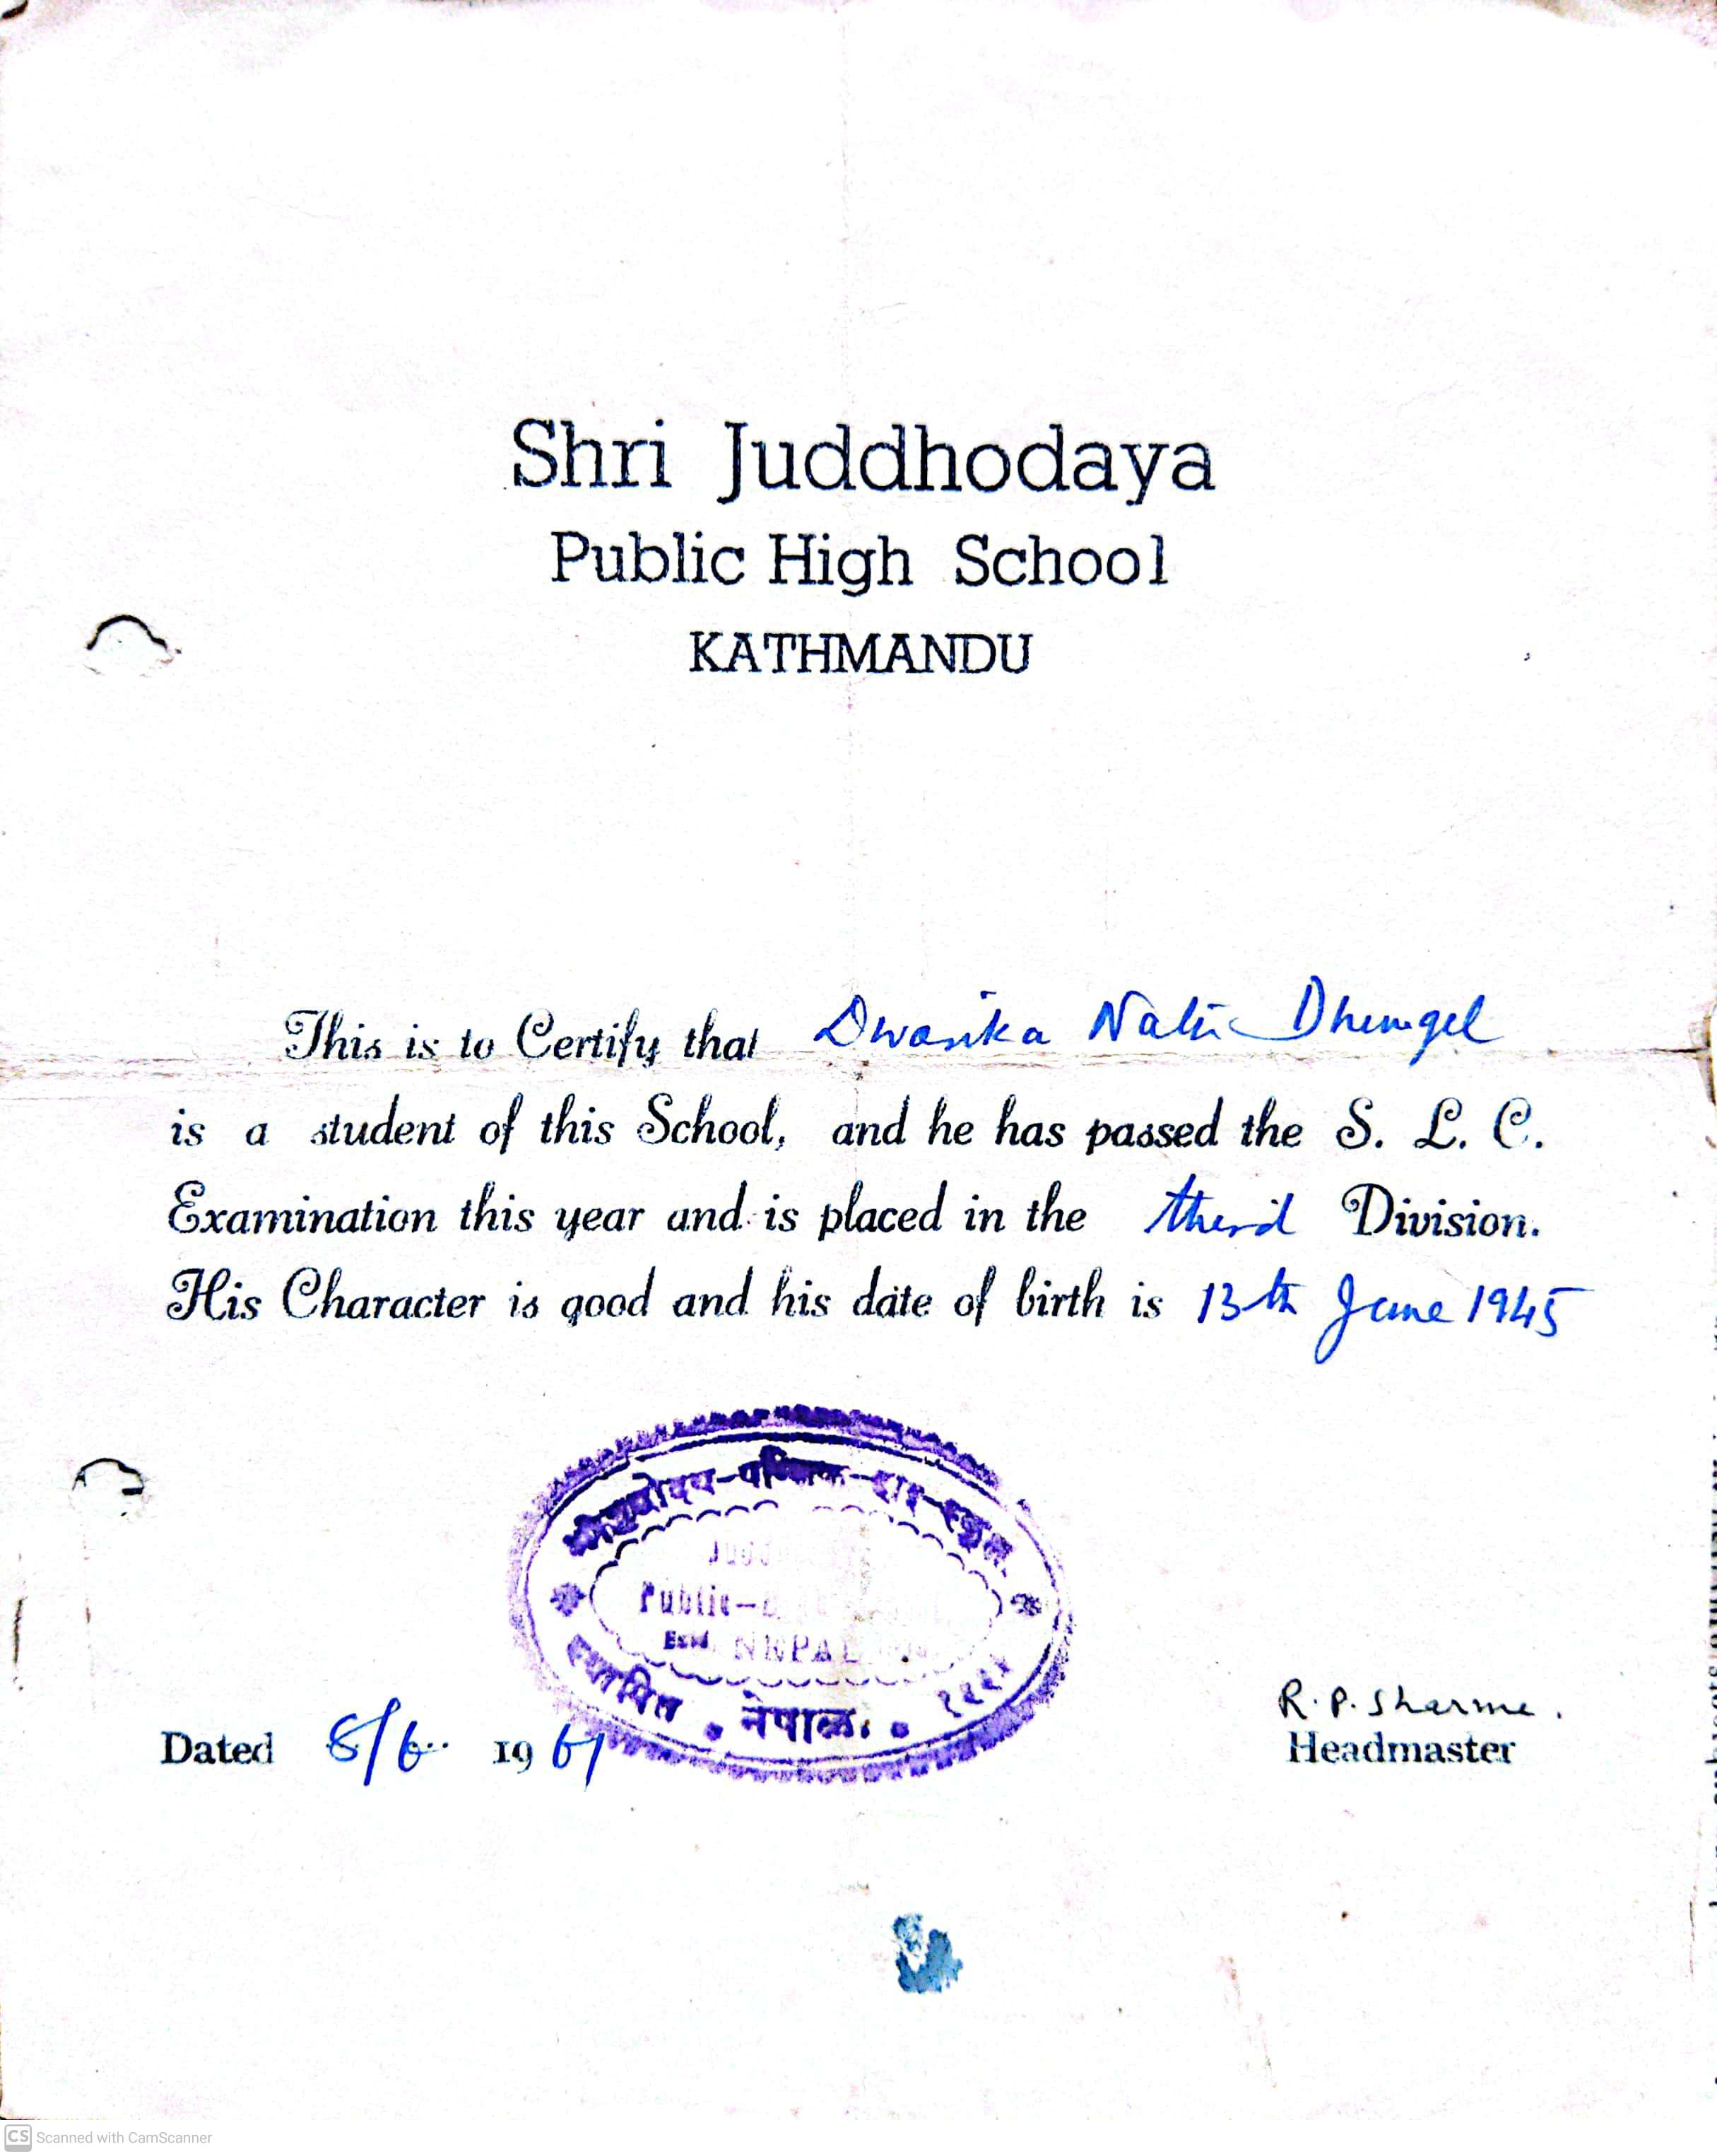 Shri Juddhodaya
Public High School
KATHMANDU
This is to Certify that Dwarika Nath Dhungel
is a student of this School, and he has passed the S. L. C.
Examination this year and is placed in the third Division.
His Character is good and his date of birth is 13th June 1945
श्री जुद्धोदय-पब्लिक-हाइ-स्कूल
Public-
Estd. NEPAL
स्थापित नेपाल
R. P. Sharma.
Dated 8/6 1961
Headmaster
CS Scanned with CamScanner